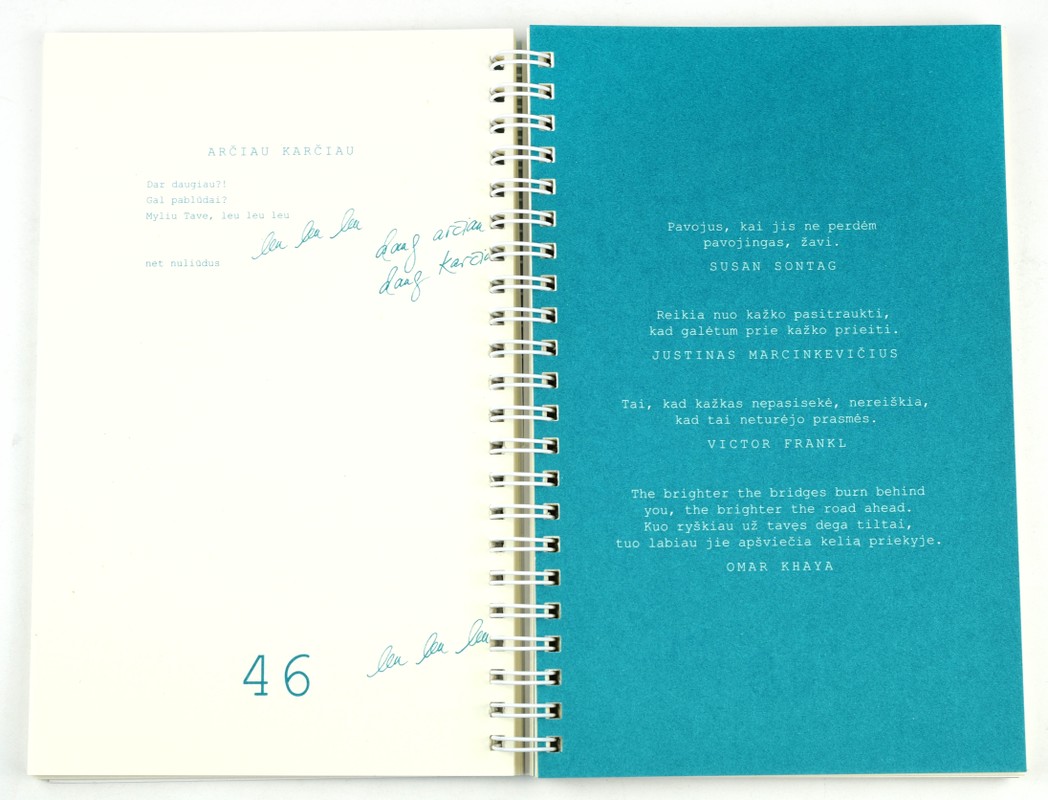 ARČIAU KARČIAU
Dar daugiau?!
Gal pablūdai?
Myliu Tave, leu leu leu
leu leu leu
daug arčiau
daug karčia
net nuliūdus
leu leu leu
46
Pavojus, kai jis ne perdėm
pavojingas, žavi.
SUSAN SONTAG
Reikia nuo kažko pasitraukti,
kad galėtum prie kažko prieiti.
JUSTINAS MARCINKEVIČIUS
Tai, kad kažkas nepasisekė, nereiškia,
kad tai neturėjo prasmės.
VICTOR FRANKL
The brighter the bridges burn behind
you, the brighter the road ahead.
Kuo ryškiau už tavęs dega tiltai,
tuo labiau jie apšviečia kelią priekyje.
OMAR KHAYA